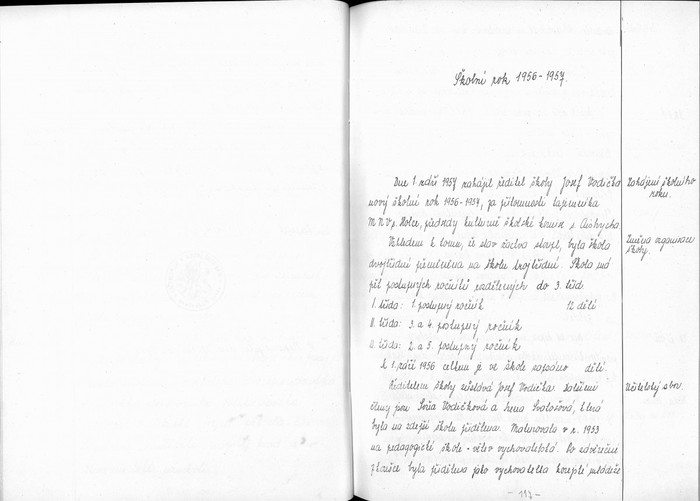 Školní rok 1956-1957.
Dne 1. září 1957 zahájil ředitel školy Josef Vodička
nový školní rok 1956-1957, za přítomnosti tajemníka
M N V s. Holce, předsedy kulturně školské komise s.
Vzhledem k tomu, že stav žactva stoupl, byla škola
dvojtřídní přeměněna na školu trojtřídní. Škola má
pět postupných ročníků rozdělených do 3. tříd.
I. třída: 1. postupný ročník 12 dětí
II. třída: 3. a 4. postupný ročník
III. třída: 2. a 5. postupný ročník
K 1. září 1956 celkem je ve škole zapsáno dětí.
Ředitelem školy zůstává Josef Vodička. Dalšími
členy jsou Soňa Vodičková a Svatošová, která
byla na zdejší školu přidělena. Maturovala v r. 1953
na pedagogické škole - větev vychovatelská. Po závěrečné
zkoušce byla přidělena jako vychovatelka mládeže
- 133 -
Zahájení školního
roku.
Změna organisace
školy.
Učitelský sbor.